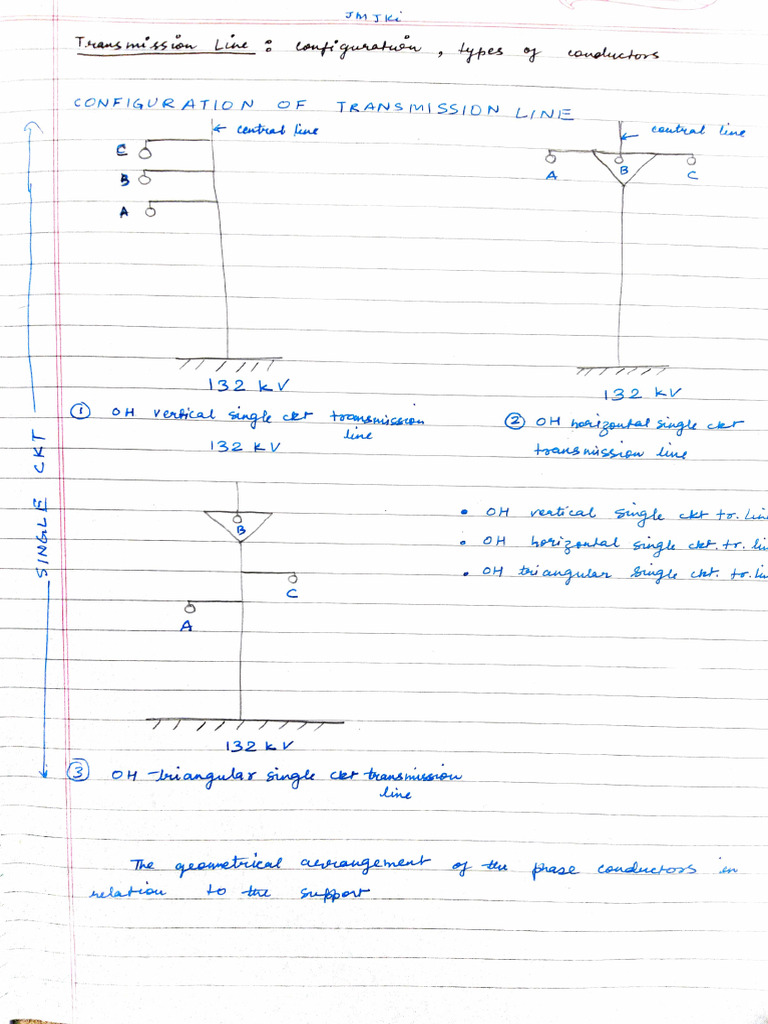 JMJKi
Transmission Line : configuration, types of conductors
CONFIGURATION OF TRANSMISSION LINE
central line
C
B
A
132 kV
① OH vertical single ckt transmission
line
132 kV
central line
A
B
C
132 kV
② OH horizontal single ckt
transmission line
SINGLE CKT
B
C
A
132 kV
③ OH triangular single ckt transmission
line
• OH vertical single ckt tr. Line
• OH horizontal single ckt. tr. lin
• OH triangular single ckt. tr. Lin
The geometrical arrangement of the phase conductors in
relation to the support